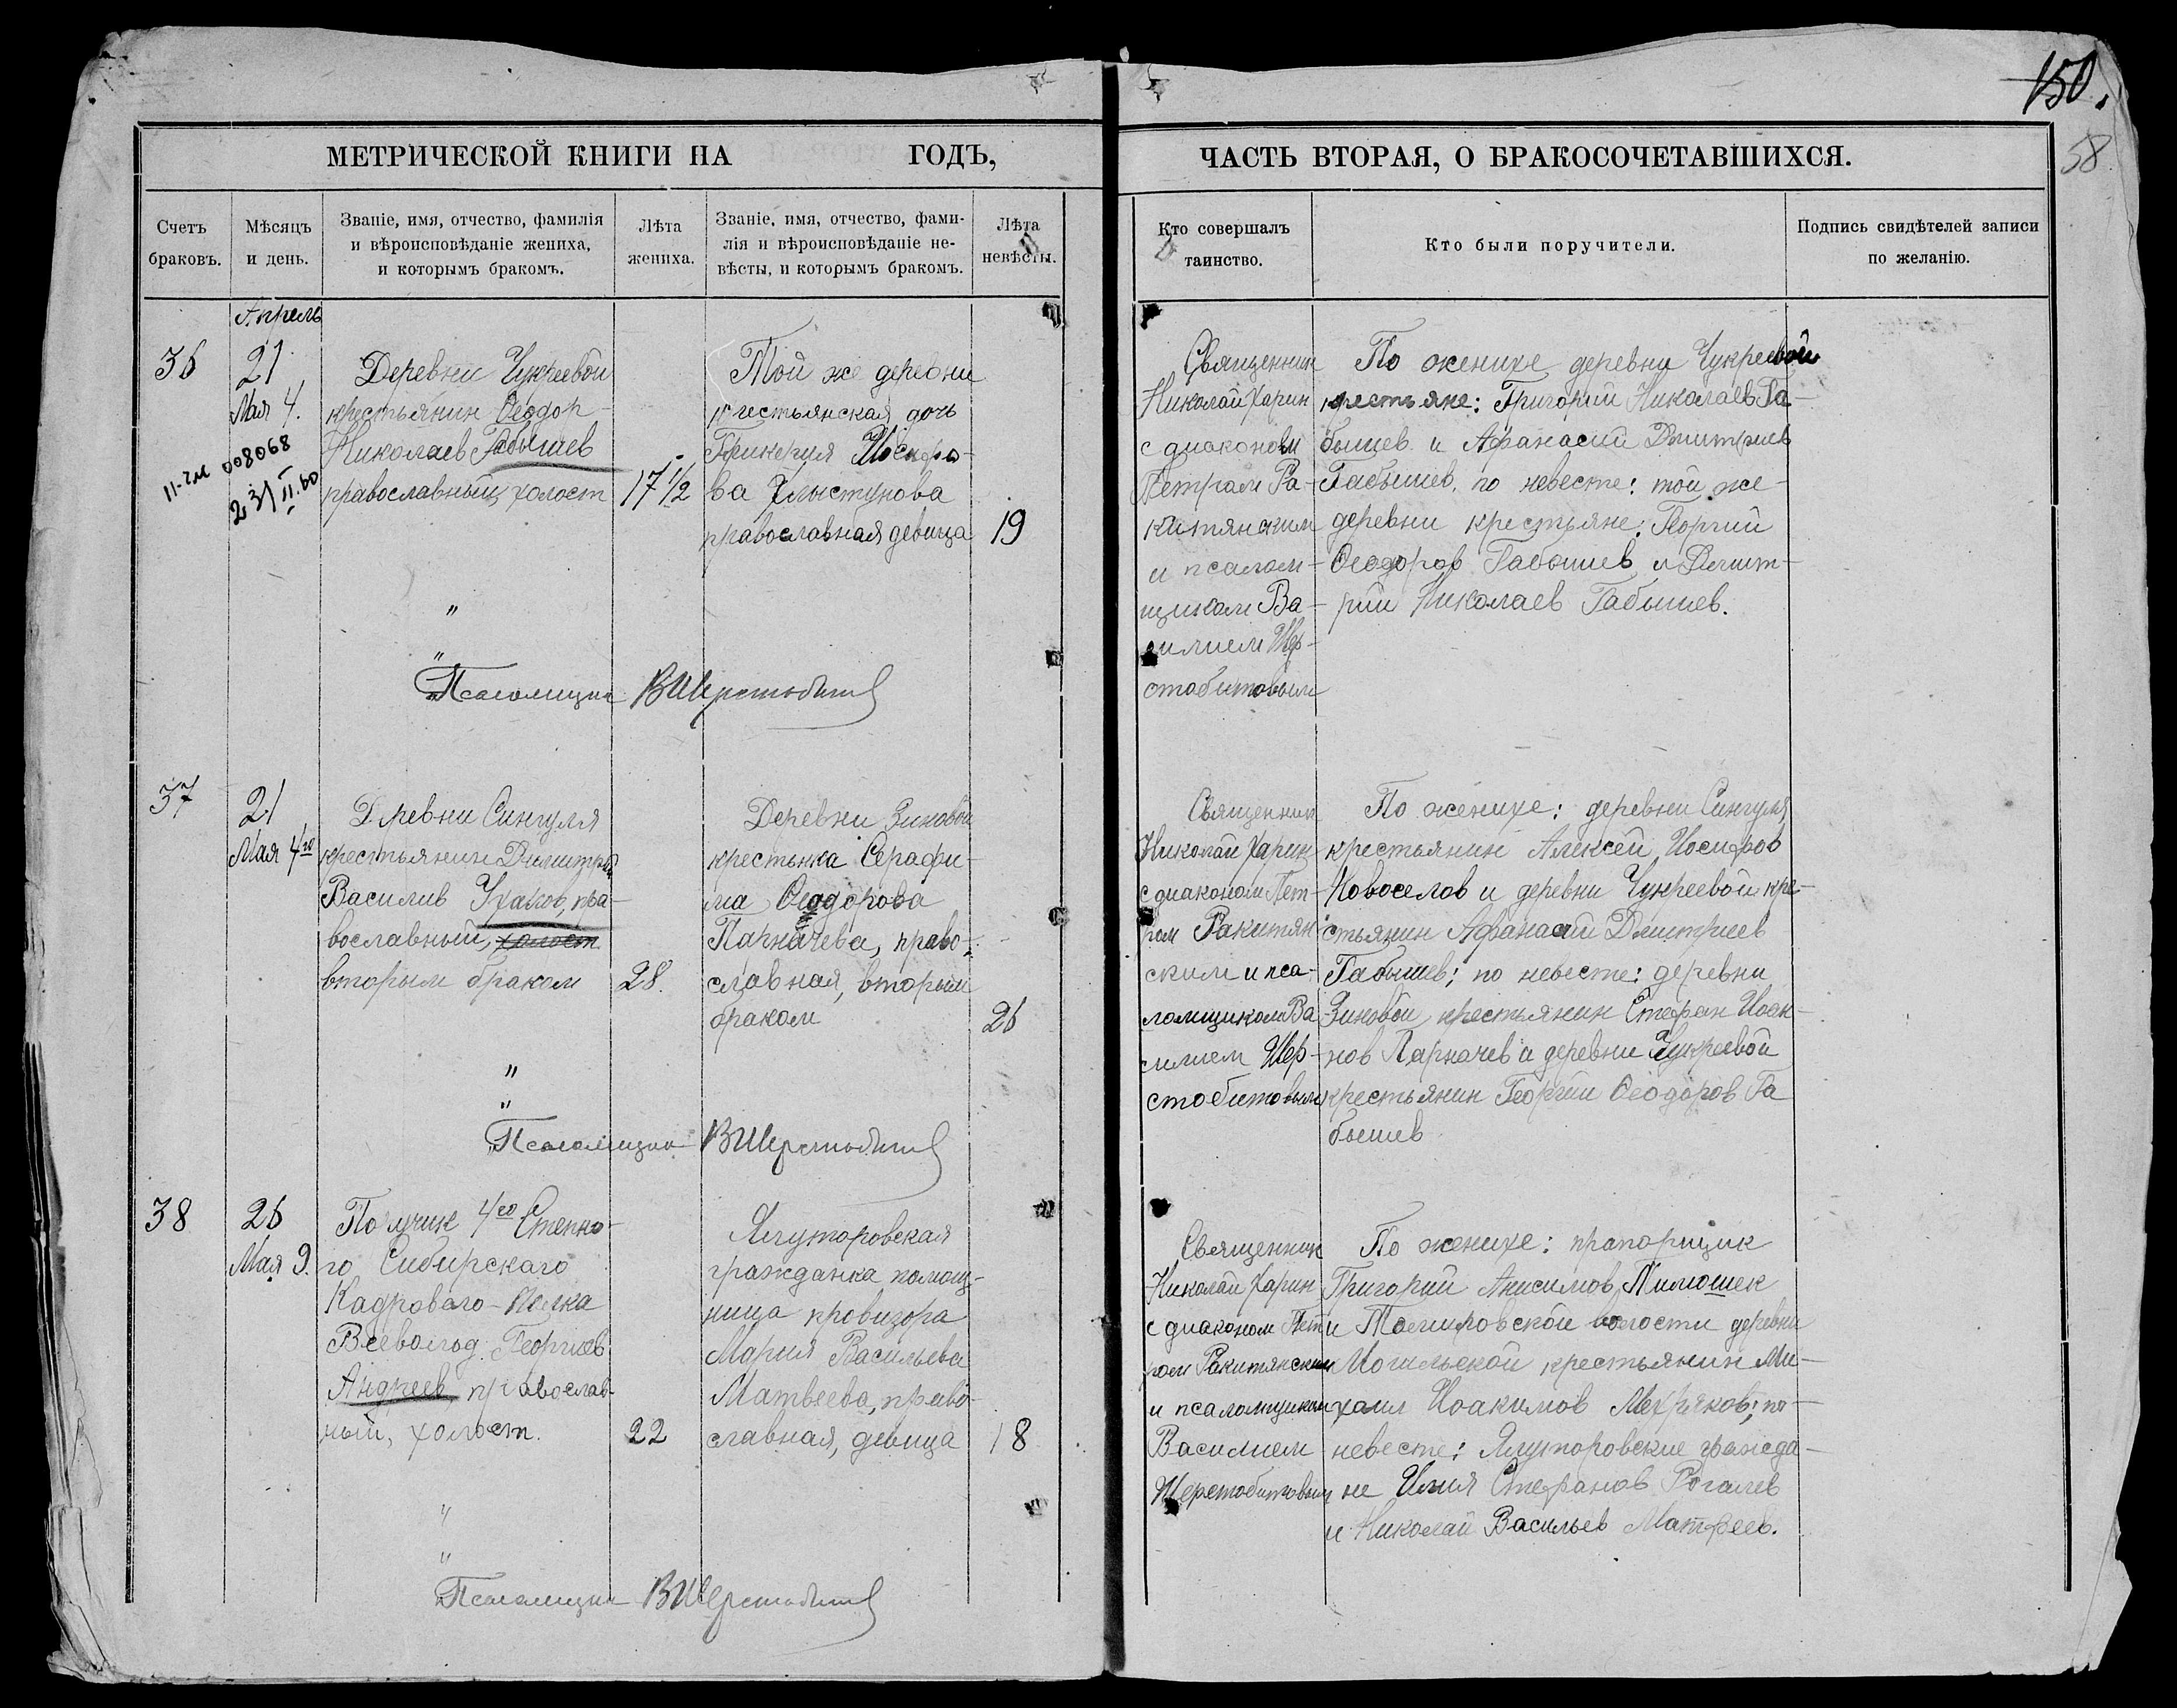 150.
58
МЕТРИЧЕСКОЙ КНИГИ НА ГОДЪ,
Счетъ браковъ.
Мѣсяцъ и день.
Званіе, имя, отчество, фамилія
и вѣроисповѣданіе жениха,
и которымъ бракомъ.
Лѣта жениха.
Званіе, имя, отчество, фами-
лія и вѣроисповѣданіе не-
вѣсты, и которымъ бракомъ.
Лѣта невѣсты.
Апрель
36
21
Мая 4.
008068
Деревни Чукреевой
крестьянин Ѳеодор
Николаев Габышев
православный, холост
17 1/2
Той же деревни
крестьянская дочь
Гликерия Иосифо-
ва Хлыстунова
православная девица
19
"
"
Псаломщик ВШерстобитов
37
21
Мая 4го
Деревни Сингуля
крестьянин Димитрий
Василив Ушаков, пра-
вославный, холост
вторым браком
28.
Деревни Зиновой
крестьнка Серафи-
ма Ѳеодорова
Парначева, право-
славная, вторым
браком
26
"
"
Псаломщик ВШерстобитов
38
26
Мая 9.
Поручик 4го Степно-
го Сибирскаго
Кадроваго Полка
Всеволод Георгиев
Андреев, православ-
ный, холост.
22
Ялуторовская
гражданка помощ-
ница провизора
Мария Васильева
Матвеева, право-
славная, девица
18
"
"
Псаломщик ВШерстобитов
ЧАСТЬ ВТОРАЯ, О БРАКОСОЧЕТАВШИХСЯ.
Кто совершалъ таинство.
Кто были поручители.
Подпись свидѣтелей записи
по желанію.
Священник
Николай Харин
с диаконом
Петром Ра-
китянским
и псалом-
щиком Ва-
силием Шер-
стобитовым
По женихе деревни Чукреевой
крестьяне: Григорий Николаев Га-
бышев и Афанасий Дмитриев
Габышев, по невесте: той же
деревни крестьяне: Георгий
Ѳеодоров Габышев и Дмит-
рий Николаев Габышев.
Священник
Николай Харин
с диаконом Пет-
ром Ракитян-
ским и пса-
ломщиком Ва-
силием Шер-
стобитовым
По женихе: деревни Сингуля
крестьянин Алексей Иосифов
Новоселов и деревни Чукреевой кре-
стьянин Афанасий Дмитриев
Габышев; по невесте: деревни
Зиновой крестьянин Стефан Иоан-
нов Парначев и деревни Чукреевой
крестьянин Георгий Ѳеодоров Га
бышев
Священник
Николай Харин
с диаконом Пет-
ром Ракитянским
и псаломщиком
Василием
Шерстобитовым
По женихе: прапорщик
Григорий Анисимов
и волости деревни
крестьянин Ми-
хаил Иоакимов Мехряков; по
невесте: Ялуторовские гражда-
не Илия Стефанов Рогалев
и Николай Васильев Матвеев.